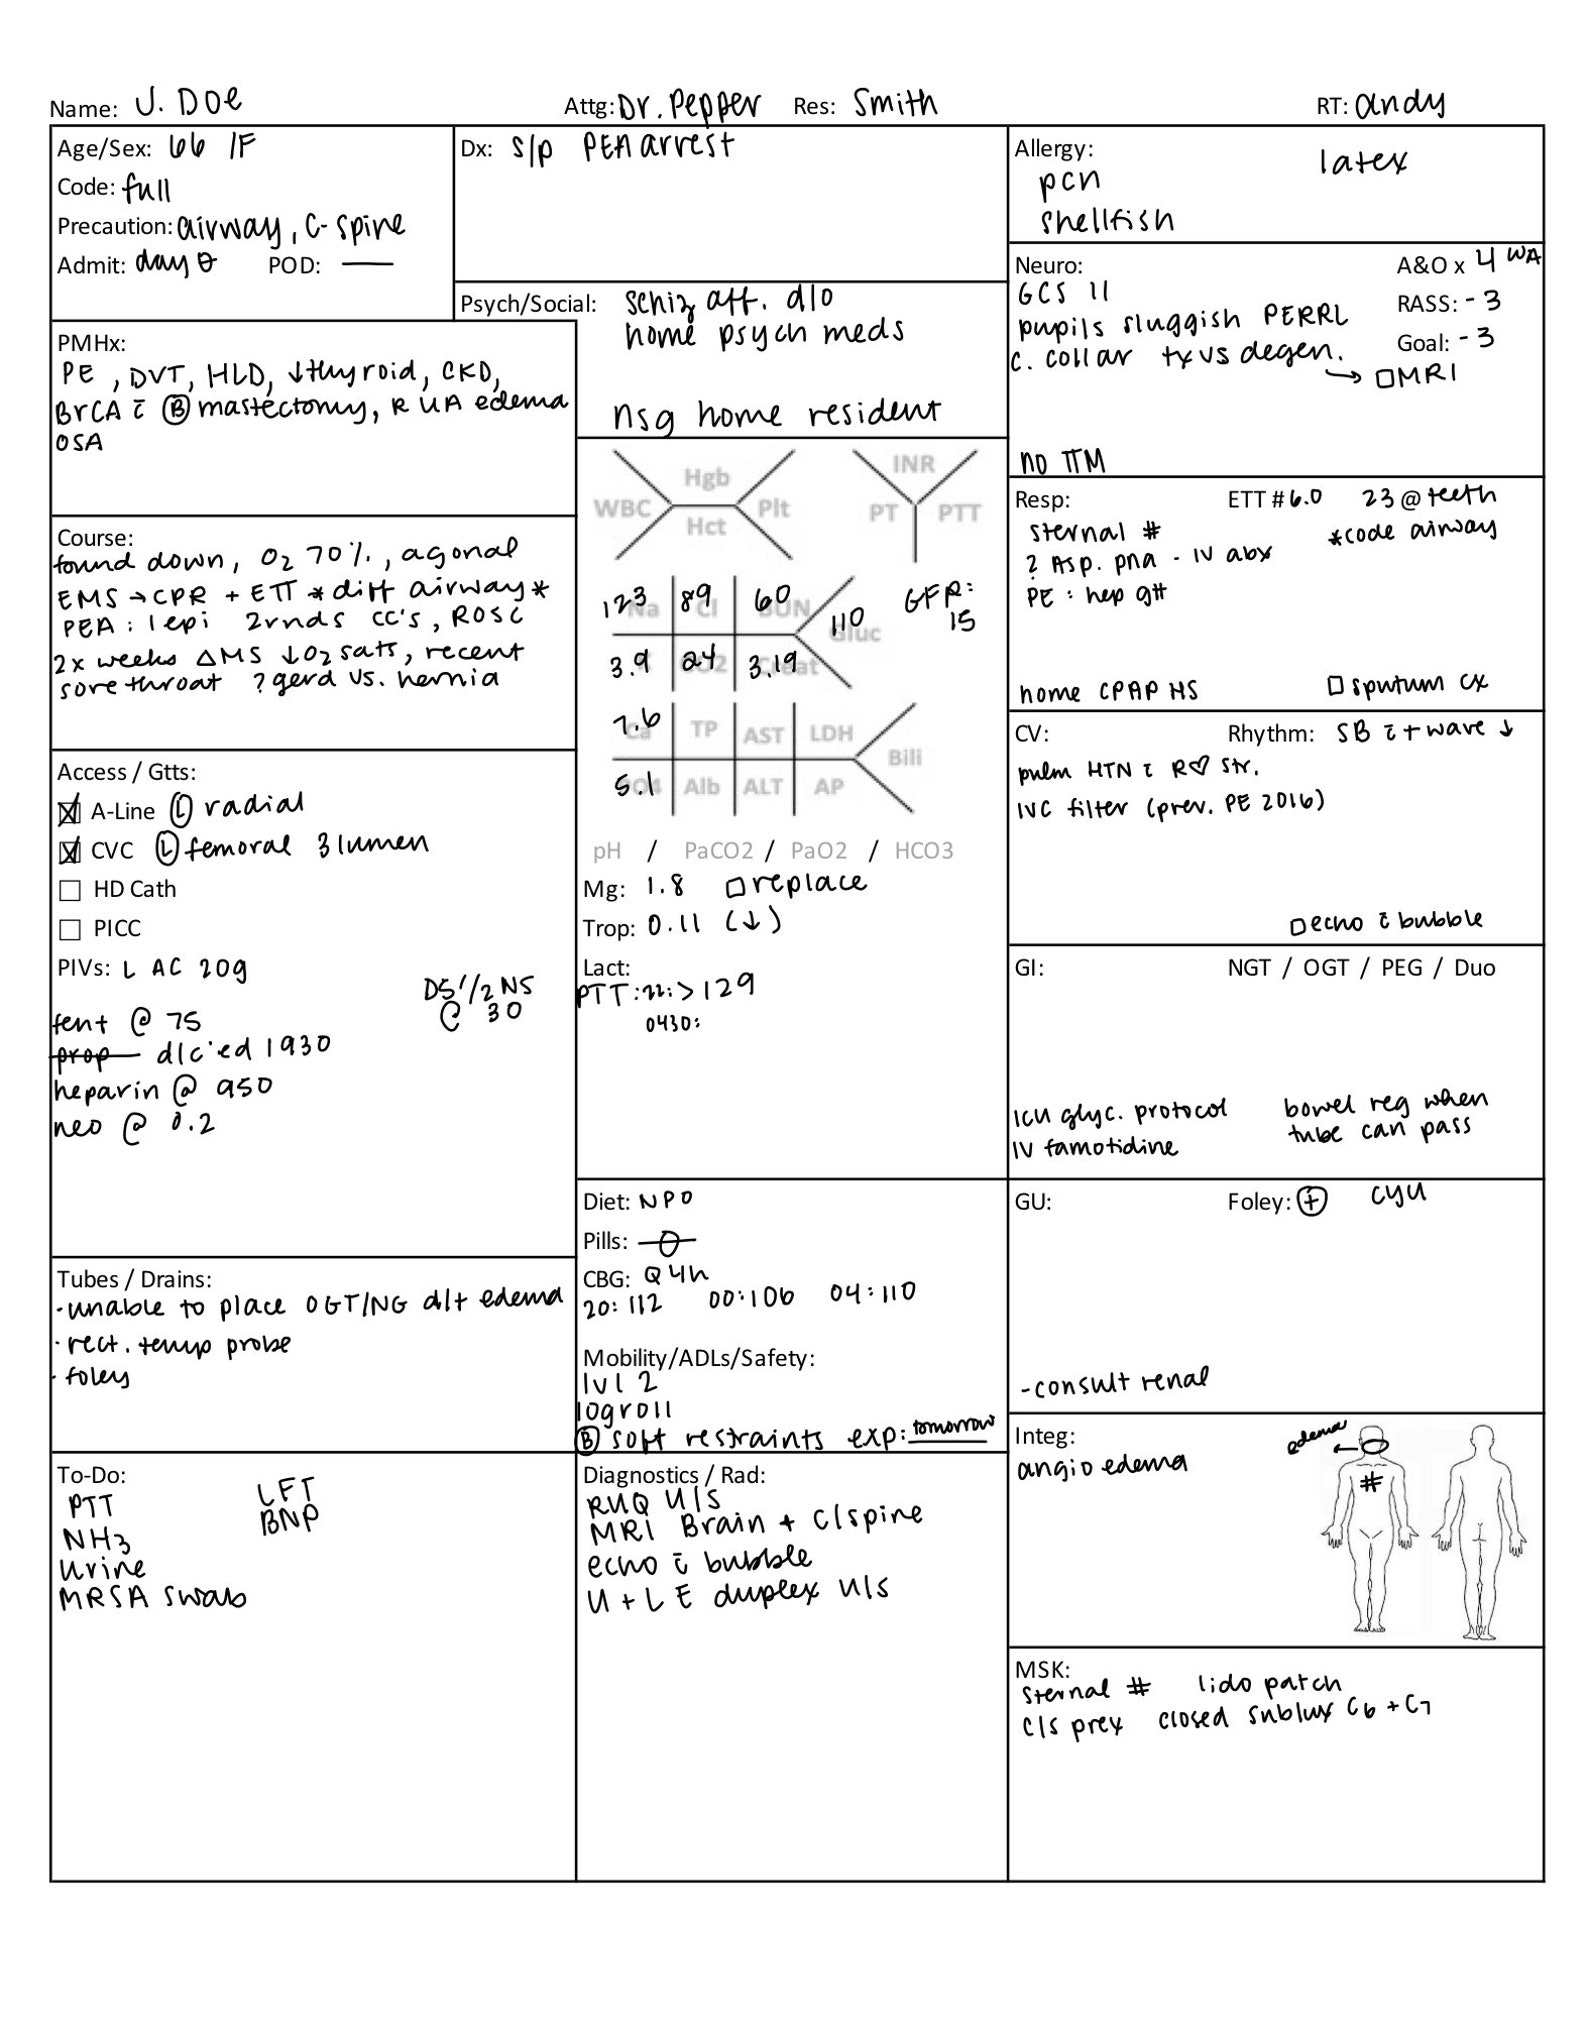 Name: J. Doe Attg: Dr. Pepper Res: Smith RT: andy
Age/Sex: 66 /F
Code: full
Precaution: airway, C-spine
Admit: day 0 POD: —
Dx: s/p PEA arrest
Allergy: latex
pcn
shellfish
Psych/Social: schiz aff. d/o
home psych meds
nsg home resident
Neuro: A&O x 4 WA
GCS 11 RASS: -3
pupils sluggish PERRL
Goal: -3
c. collar tx vs degen.
→ □MRI
no TTM
PMHx:
PE, DVT, HLD, ↓thyroid, CKD,
BrCA c̄ Ⓑ mastectomy, R UA edema
OSA
Course:
found down, O2 70%, agonal
EMS → CPR + ETT *diff airway*
PEA: 1 epi 2rnds CC's, ROSC
2x weeks ΔMS ↓O2 sats, recent
sore throat ? gerd vs. hernia
WBC Hgb Hct Plt INR PT PTT
123 89 60 110 GFR: 15
Na Cl BUN Gluc
3.9 24 3.19
CO2 Creat
7.6 TP AST LDH Bili
Ca
5.1 Alb ALT AP
PO4
pH / PaCO2 / PaO2 / HCO3
Mg: 1.8 □replace
Trop: 0.11 (↓)
Lact:
PTT: 22: >129
0430:
Resp: ETT # 6.0 23 @ teeth
sternal # *code airway
? Asp. pna - IV abx
PE: hep gtt
home CPAP HS □ sputum cx
CV: Rhythm: SB c̄ t wave ↓
pulm HTN c̄ R♡ str.
IVC filter (prev. PE 2016)
□echo c̄ bubble
Access / Gtts:
☒ A-Line Ⓛ radial
☒ CVC Ⓛ femoral 3 lumen
☐ HD Cath
☐ PICC
PIVs: L AC 20g
D5 1/2 NS
@ 30
fent @ 75
prop d/c'ed 1930
heparin @ 950
neo @ 0.2
GI: NGT / OGT / PEG / Duo
ICU glyc. protocol
IV famotidine
bowel reg when
tube can pass
Diet: NPO
Pills: 0
CBG: Q4h
20: 112 00:106 04:110
Mobility/ADLs/Safety:
lvl 2
logroll
Ⓑ soft restraints exp: tomorrow
GU: Foley: ⊕ CYU
-consult renal
Tubes / Drains:
-unable to place OGT/NG d/t edema
· rect. temp probe
· foley
Integ: edema
angio edema
#
To-Do:
PTT LFT
NH3 BNP
Urine
MRSA swab
Diagnostics / Rad:
RUQ U/S
MRI Brain + C/spine
echo c̄ bubble
U + L E duplex U/S
MSK:
sternal # lido patch
c/s prex closed sublux C6 + C7